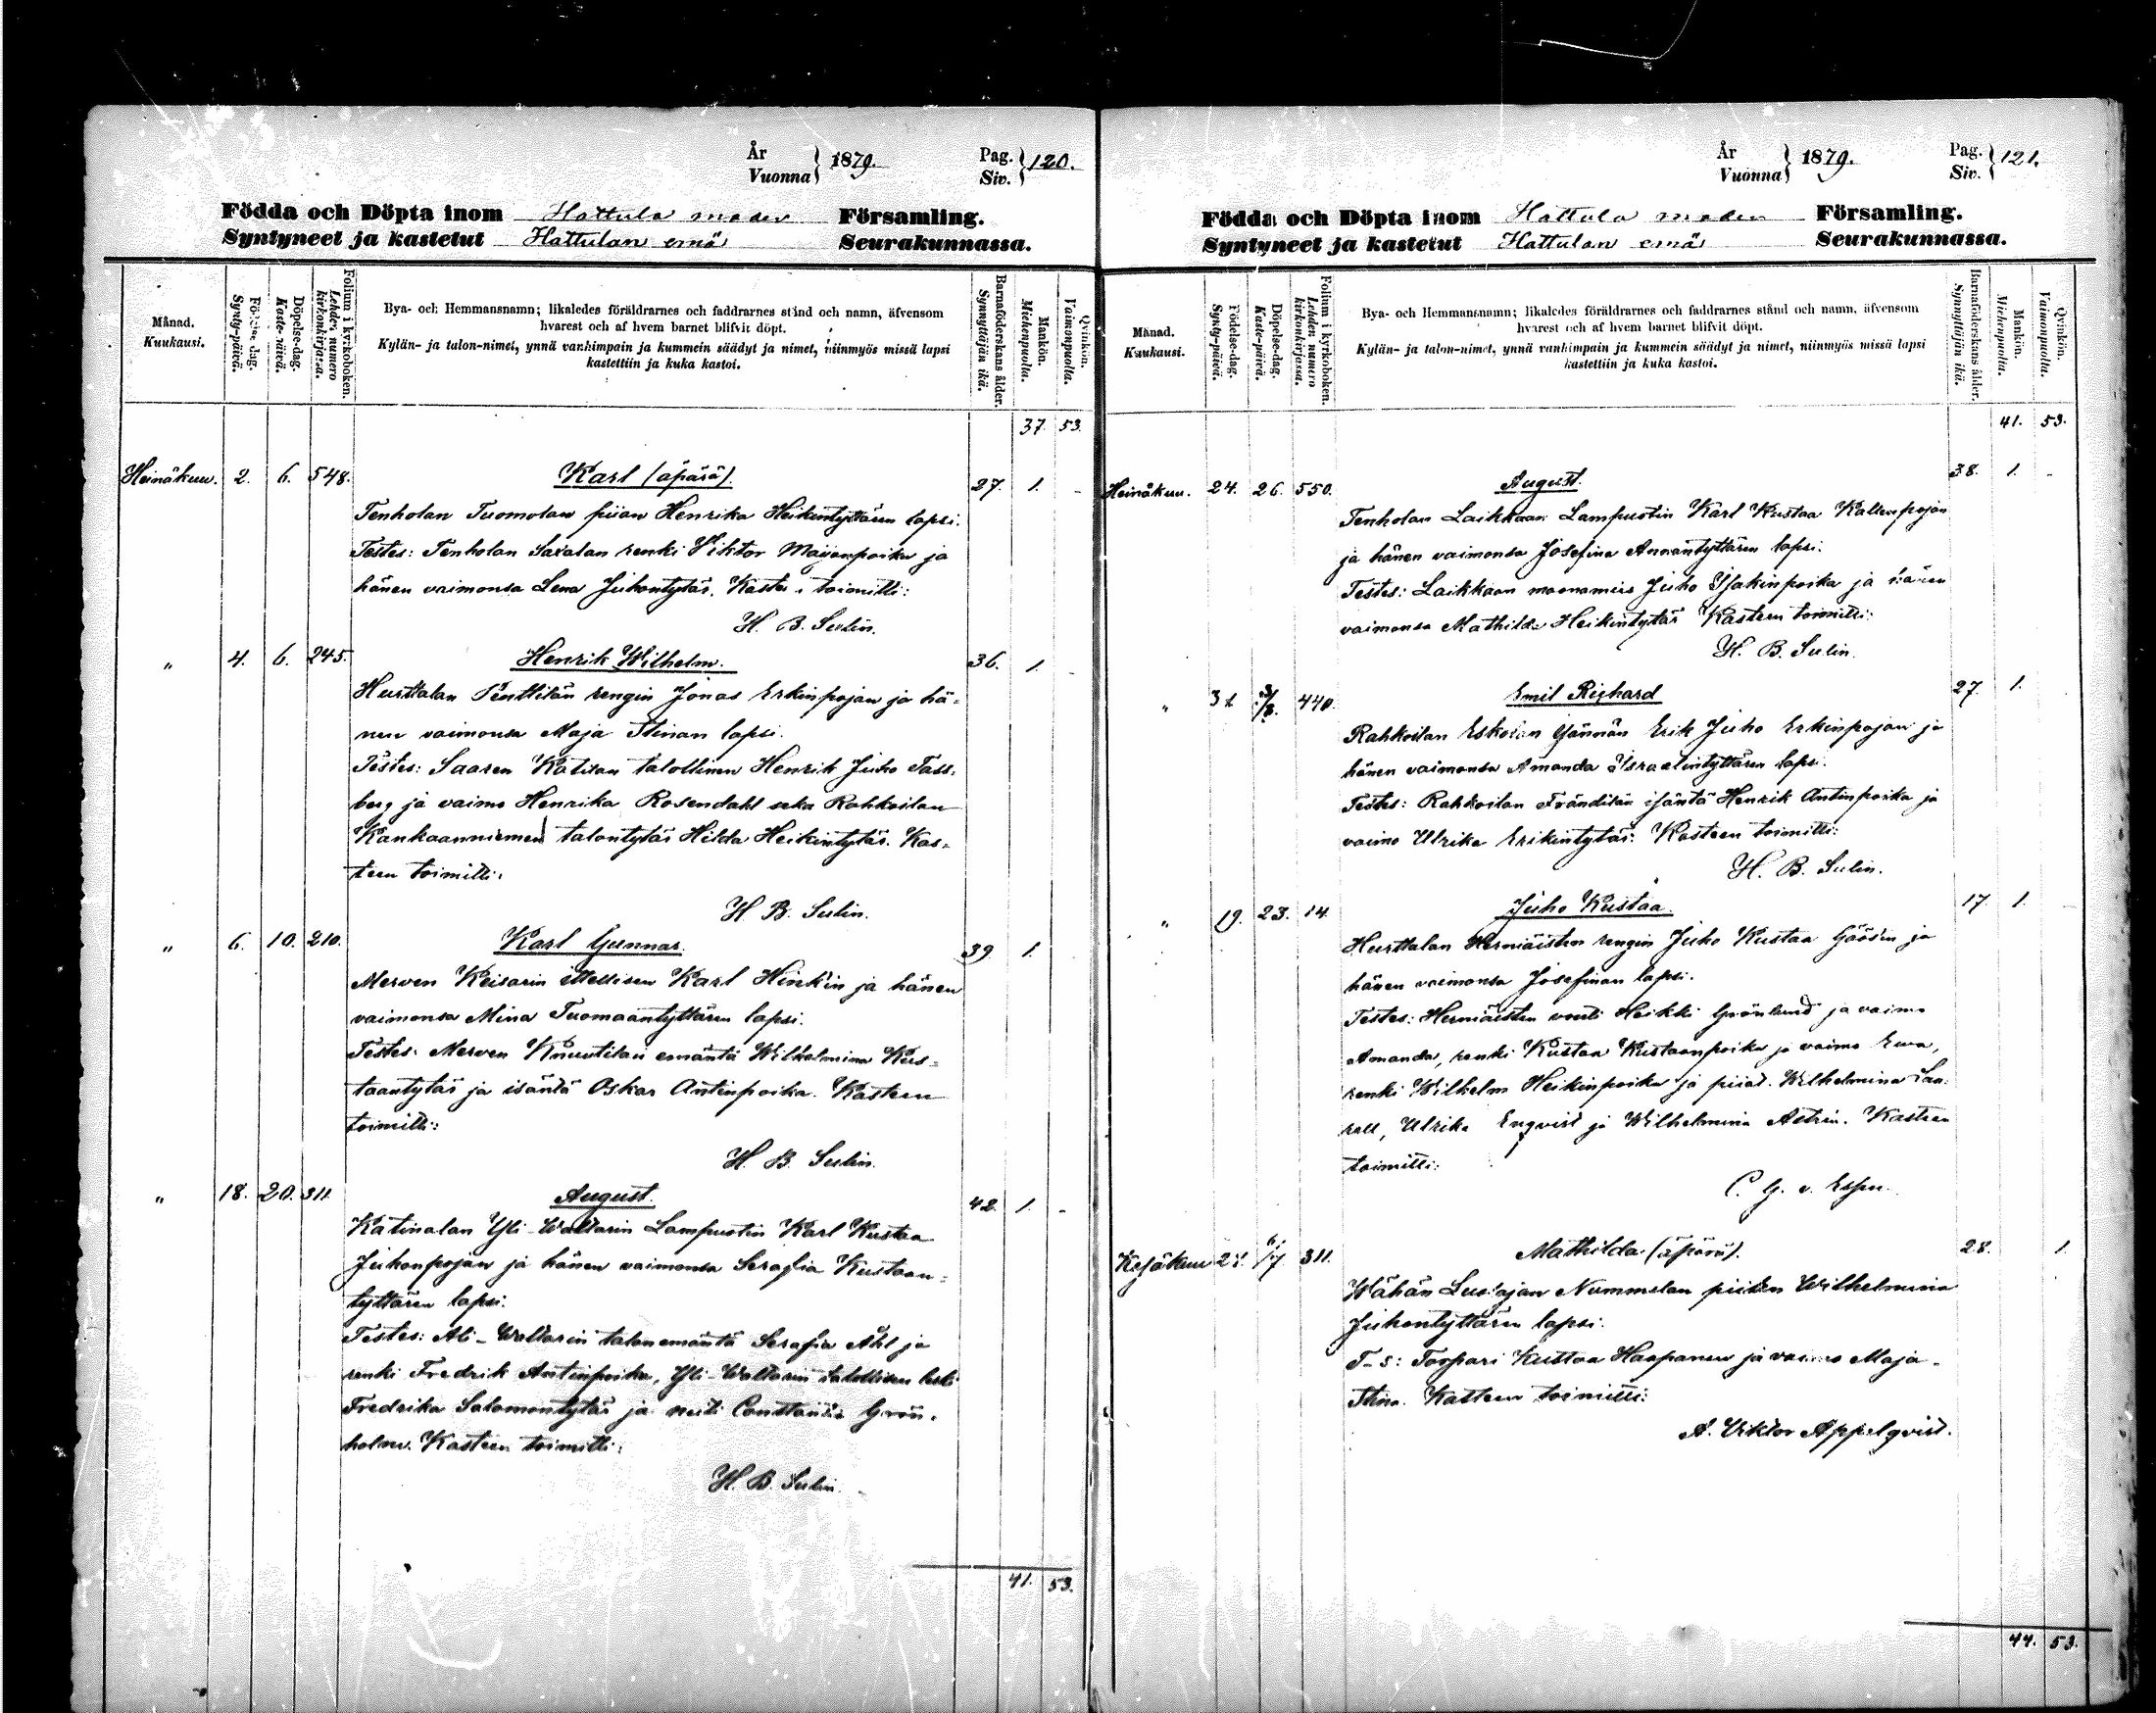 År Vuonna } 1879. Pag. Siv. } 120.
Födda och Döpta inom Hattula moder Församling.
Syntyneet ja kastetut Hattulan emä Seurakunnassa.
Månad. Kuukausi.
Födelse-dag. Synty-päivä.
Döpelse-dag. Kaste-päivä.
Folium i kyrkoboken. Lehden numero kirkonkirjassa.
Bya- och Hemmansnamn; likaledes föräldrarnes och faddrarnes stånd och namn, äfvensom
hvarest och af hvem barnet blifvit döpt.
Kylän- ja talon-nimet, ynnä vanhimpain ja kummein säädyt ja nimet, niinmyös missä lapsi
kastettiin ja kuka kastoi.
Barnaföderskans ålder. Synnyttäjän ikä.
Mankön. Miehenpuolta.
Qvinkön. Vaimonpuolta.
37. 53.
Heinäkuu. 2. 6. 548. Karl (äpärä). 27. 1. -
Tenholan Tuomolan piian Henrika Heikintyttären lapsi.
Testes: Tenholan Saxalan renki Viktor Maijanpoika ja
hänen vaimonsa Lena Juhontytär. Kasteen toimitti:
H. B. Sulin.
" 4. 6. 245. Henrik Wilhelm. 36. 1.
Hurttalan Penttilän rengin Jonas Erkinpojan ja hä-
nen vaimonsa Maja Stinan lapsi.
Testes: Saaren Katilan talollinen Henrik Juho Tass-
berg ja vaimo Henrika Rosendahl seka Rahkoilan
Kankaanniemen talontytär Hilda Heikintytär. Kas-
teen toimitti:
H. B. Sulin.
" 6. 10. 210. Karl Gunnar. 39 1.
Merven Keisarin ittellisen Karl Hinkin ja hänen
vaimonsa Mina Tuomaantyttären lapsi.
Testes: Merven Knuutilan emäntä Wilhelmina Kus-
taantytär ja isäntä Oskar Antinpoika. Kasteen
toimitti:
H. B. Sulin.
" 18. 20. 311. August. 42. 1. -
Katinalan Yli-Waltarin Lampuotin Karl Kustaa
Juhonpojan ja hänen vaimonsa Serafia Kustaan-
tyttären lapsi:
Testes: Ali-Waltarin talon emäntä Serafia Åhl ja
renki Fredrik Antinpoika, Yli-Waltarin talollisen leski
Fredrika Salomontytär ja neiti Constantia Grön-
holm. Kasteen toimitti:
H. B. Sulin.
41. 53.
År Vuonna } 1879. Pag. Siv. } 121.
Födda och Döpta inom Hattula moder Församling.
Syntyneet ja kastetut Hattulan emä Seurakunnassa.
Månad. Kuukausi.
Födelse-dag. Synty-päivä.
Döpelse-dag. Kaste-päivä.
Folium i kyrkoboken. Lehden numero kirkonkirjassa.
Bya- och Hemmansnamn; likaledes föräldrarnes och faddrarnes stånd och namn, äfvensom
hvarest och af hvem barnet blifvit döpt.
Kylän- ja talon-nimet, ynnä vanhimpain ja kummein säädyt ja nimet, niinmyös missä lapsi
kastettiin ja kuka kastoi.
Barnaföderskans ålder. Synnyttäjän ikä.
Mankön. Miehenpuolta.
Qvinkön. Vaimonpuolta.
41. 53.
Heinäkuu. 24. 26. 550. August. 38. 1. -
Tenholan Laikkaan Lampuotin Karl Kustaa Kallenpojan
ja hänen vaimonsa Josefina Annantyttären lapsi.
Testes: Laikkaan maanamies Juho Isakinpoika ja hänen
vaimonsa Mathilda Heikintytär Kasteen toimitti:
H. B. Sulin.
" 31 3/8. 440. Emil Richard 27. 1.
Rahkoilan Eskolan Erik Juho Erkinpojan ja
hänen vaimonsa Amanda Israelintyttären lapsi.
Testes: Rahkoilan Frändilän isäntä Henrik Antinpoika ja
vaimo Ulrika Erikintytär: Kasteen toimitti:
H. B. Sulin.
" 19. 23. 14. Juho Kustaa. 17. 1.
Hurttalan Herniäisten rengin Juho Kustaa Göös'in ja
hänen vaimonsa Josefinan lapsi.
Testes: Herniäisten vouti Heikki Grönlund ja vaimo
Amanda, renki Kustaa Kustaanpoika ja vaimo Ewa,
renki Wilhelm Heikinpoika ja piiat. Wilhelmina
Ulrika Enqvist ja Wilhelmina Kasteen
toimitti:
C. G. v. Essen.
Kesäkuu 28. 6/7 311. Mathilda (äpärä). 28. 1.
Wähän Luolajan Nummelan piian Wilhelmina
Juhontyttären lapsi.
T-s: Torpari Kustaa Haapanen ja vaimo Maja-
Stina. Kasteen toimitti:
A. Viktor Appelqvist.
44. 53.